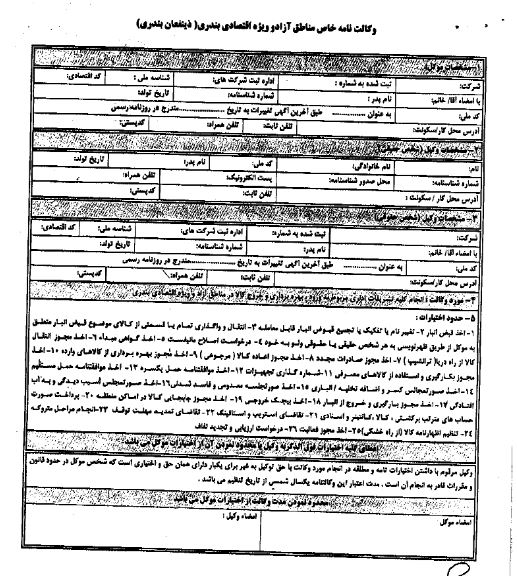 وکالت نامه خاص مناطق آزاد و ویژه اقتصادی بندری( ذینفعان بندری)
مشخصات موکل:
شرکت: ثبت شده به شماره : اداره ثبت شرکت های: شناسه ملی : کد اقتصادی:
با امضاء آقا/ خانم: نام پدر : شماره شناسنامه: تاریخ تولد:
کد ملی: به عنوان .......... طبق آخرین آگهی تغییرات به تاریخ .......... مندرج در روزنامه رسمی
آدرس محل کار/سکونت: تلفن ثابت: تلفن همراه: کدپستی:
۲- مشخصات وکیل (شخص حقیقی)
نام: نام خانوادگی: کد ملی: نام پدر: تاریخ تولد:
شماره شناسنامه: محل صدور شناسنامه: پست الکترونیک: تلفن همراه:
آدرس محل کار / سکونت : تلفن ثابت: کدپستی:
۳- مشخصات وکیل (شخص حقوقی)
شرکت: ثبت شده به شماره: اداره ثبت شرکت های : شناسه ملی: کد اقتصادی:
با امضاء آقا/ خانم: نام پدر: شماره شناسنامه: تاریخ تولد:
کد ملی: به عنوان .......... طبق آخرین آگهی تغییرات به تاریخ .......... مندرج در روزنامه رسمی
آدرس محل کار/سکونت: تلفن ثابت: تلفن همراه: کدپستی:
۴- مورد وکالت : انجام کلیه تشریفات اداری مربوط به ورود، بهره برداری و خروج کالا در مناطق آزاد و ویژه اقتصادی بندری
۵- حدود اختیارات :
۱- اخذ قبض انبار ۲- تغییر نام یا تفکیک یا تجمیع قبوض انبار قابل معامله ۳- انتقال و واگذاری تمام یا قسمتی از کالای موضوع قبوض انبار متعلق
به موکل از طریق ظهرنویسی به هر شخص حقیقی یا حقوقی ولو به خود ۴- درخواست اصلاح مانیفست ۵- اخذ گواهی مبداء ۶- اخذ مجوز انتقال
کالا از راه دریا( ترانشیپ) ۷- اخذ مجوز صادرات مجدد ۸- اخذ مجوز اعاده کالا ( مرجوعی ) ۹- اخذ مجوز بهره برداری از کالاهای وارده ۱۰- اخذ
مجوز بکارگیری و استفاده از کالاهای مصرفی ۱۱- شماره گذاری تجهیزات ۱۲- اخذ موافقتنامه حمل یکسره ۱۳- اخذ موافقتنامه حمل مستقیم
۱۴- اخذ صورتمجلس کسر و اضافه تخلیه / انباری ۱۵- اخذ صورتجلسه معدومی و فاسد شدنی ۱۶- اخذ صورتمجلس آسیب دیدگی و به آب
افتادگی ۱۷- اخذ مجوز بارگیری و خروج از انبار ۱۸- اخذ بیجک خروجی ۱۹- اخذ مجوز جابجایی کالا در اماکن منطقه ۲۰- پرداخت صورت
حساب های مترتب برکشتی ، کالا، کانتینر و اسنادی ۲۱- تقاضای استریپ و استافینگ ۲۲- تقاضای تمدید مهلت توقف ۲۳- انجام مراحل متروکه
۲۴- تنظیم اظهارنامه کالا (از راه خشکی) ۲۵- اخذ مجوز فعالیت ۲۶- درخواست ارزیابی و تجدید تفاف
وکیل مرقوم با داشتن اختیارات تامه و مطلقه در انجام مورد وکالت با حق توکیل به غیر برای یکبار دارای همان حق و اختیاری است که شخص موکل در حدود قانون
و مقررات قادر به انجام آن است . مدت اعتبار این وکالتنامه یکسال شمسی از تاریخ تنظیم می باشد .
محدود نمودن مدت وکالت از اختیارات موکل می باشد
امضاء موکل امضاء وکیل :